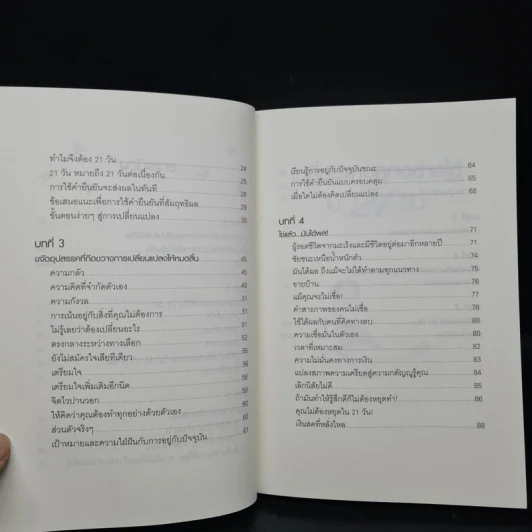 ทำไมจึงต้อง 21 วัน 24
21 วัน หมายถึง 21 วันต่อเนื่องกัน 25
การใช้คำยืนยันจะส่งผลในทันที
ข้อเสนอแนะเพื่อการใช้คำยืนยันที่สัมฤทธิผล
ขั้นตอนง่ายๆ สู่การเปลี่ยนแปลง 30
บทที่ 3
ขจัดอุปสรรคที่กีดขวางการเปลี่ยนแปลงให้หมดสิ้น 45
ความกลัว 45
ความคิดที่จำกัดตัวเอง
ความกังวล
การเน้นอยู่กับสิ่งที่คุณไม่ต้องการ
ไม่รู้เลยว่าต้องเปลี่ยนอะไร
ตรงกลางระหว่างทางเลือก
ยังไม่สมัครใจเสียทีเดียว
เตรียมใจ
เตรียมใจเพิ่มเติมอีกนิด
จิตใจปานวอก
ให้คิดว่าคุณต้องทำทุกอย่างด้วยตัวเอง
ส่วนตัวจริงๆ
เป้าหมายและความใฝ่ฝันกับการอยู่กับปัจจุบัน 61
เรียนรู้การอยู่กับปัจจุบันขณะ 64
การใช้คำยืนยันแบบครอบคลุม 65
เมื่อใดไม่ต้องคิดเปลี่ยนแปลง 68
บทที่ 4
ใช่แล้ว...มันได้ผล! 71
ผู้รอดชีวิตจากมะเร็งและมีชีวิตอยู่ต่อมาอีกหลายปี 71
ชัยชนะเหนือน้ำหนักตัว 74
มันได้ผล ถึงแม้จะไม่ได้ทำตามทุกแนวทาง 75
ขายบ้าน 76
แม้คุณจะไม่เชื่อ!
คำสารภาพของคนไม่เชื่อ
ใช้ได้ผลกับคนที่คิดทางลบ
ความเชื่อมั่นในตัวเอง 80
เวลาที่เหมาะสม
ความไม่มั่นคงทางการเงิน 83
แปลงสภาพความเครียดสู่ความกตัญญูรู้คุณ 84
เลิกนิสัยไม่ดี 85
ถ้ามันทำให้รู้สึกดีก็ไม่ต้องหยุดทำ! 86
คุณไม่ต้องหยุดใน 21 วัน!
เงินสดที่หลั่งไหล 88